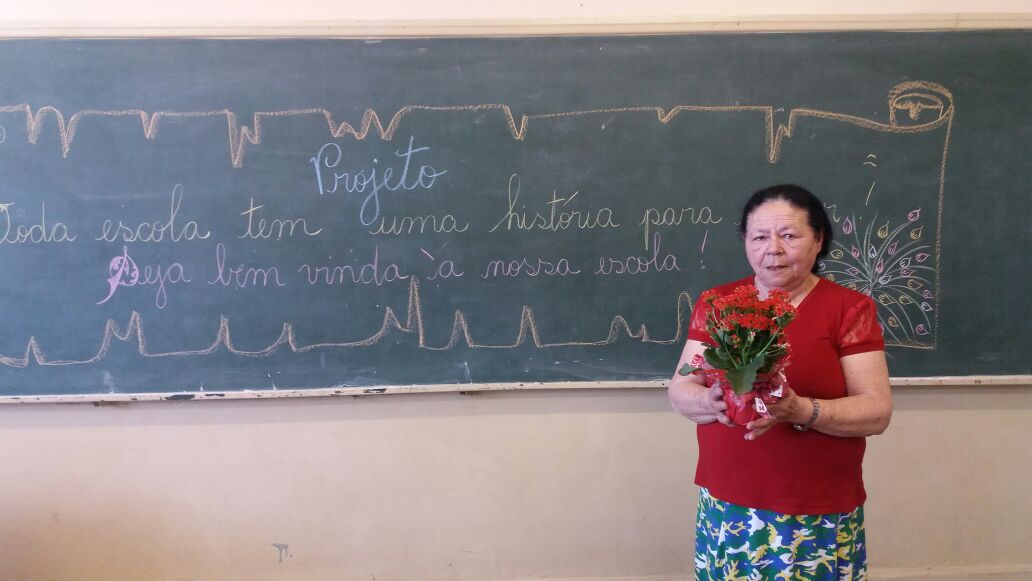 Projeto
Toda escola tem uma história para
Seja bem vinda à nossa escola!